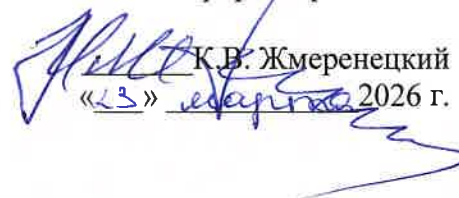 К.В. Жмеренецкий
«23» марта 2026 г.